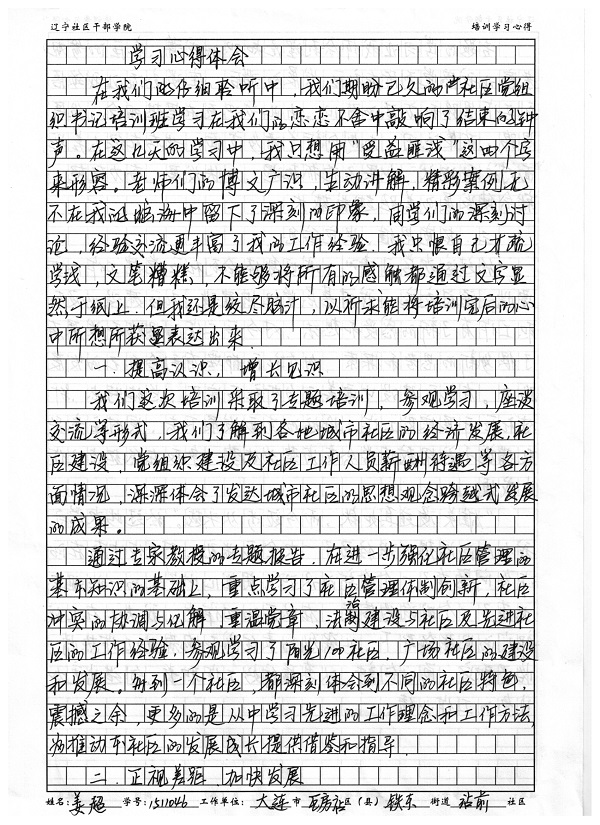 辽宁社区干部学院 培训学习心得
学习心得体会
在我们的仔细聆听中，我们期盼已久的社区党组
织书记培训班学习在我们的恋恋不舍中敲响了结束的钟
声。在这几天的学习中，我只想用“受益匪浅”这四个字
来形容。老师们的博文广识，生动讲解，精彩案例无
不在我脑海中留下了深刻的印象，同学们的深刻讨
论，经验交流更丰富了我的工作经验，我只恨自己才疏
学浅，文笔糟糕，不能够将所有的感触都通过文字显
然于纸上，但我还是绞尽脑汁，以祈求能将培训完后的心
中所想所获量表达出来.
一.提高认识，增长见识
我们这次培训采取了专题培训，参观学习，座谈
交流等形式，我们了解到各地城市社区的经济发展，社
区建设，党组织建设及社区工作人员薪酬待遇等各方
面情况，深深体会了发达城市社区的思想观念跨越式发展
的成果。
通过专家教授的专题报告，在进一步强化社区管理的
基本知识的基础上，重点学习了社区管理体制创新，社区
冲突的协调与化解，重温党章，法制建设与社区及先进社
区的工作经验.参观学习了阳光100社区，广场社区的建设
和发展。每到一个社区，都深刻体会到不同的社区特色，
震撼之余，更多的是从中学习先进的工作理念和工作方法，
为推动本社区的发展成长提供借鉴和指导.
二.正视差距，加快发展
姓名：姜超 学号：1511046 工作单位：大连市 瓦房店区（县）铁东街道 站前社区